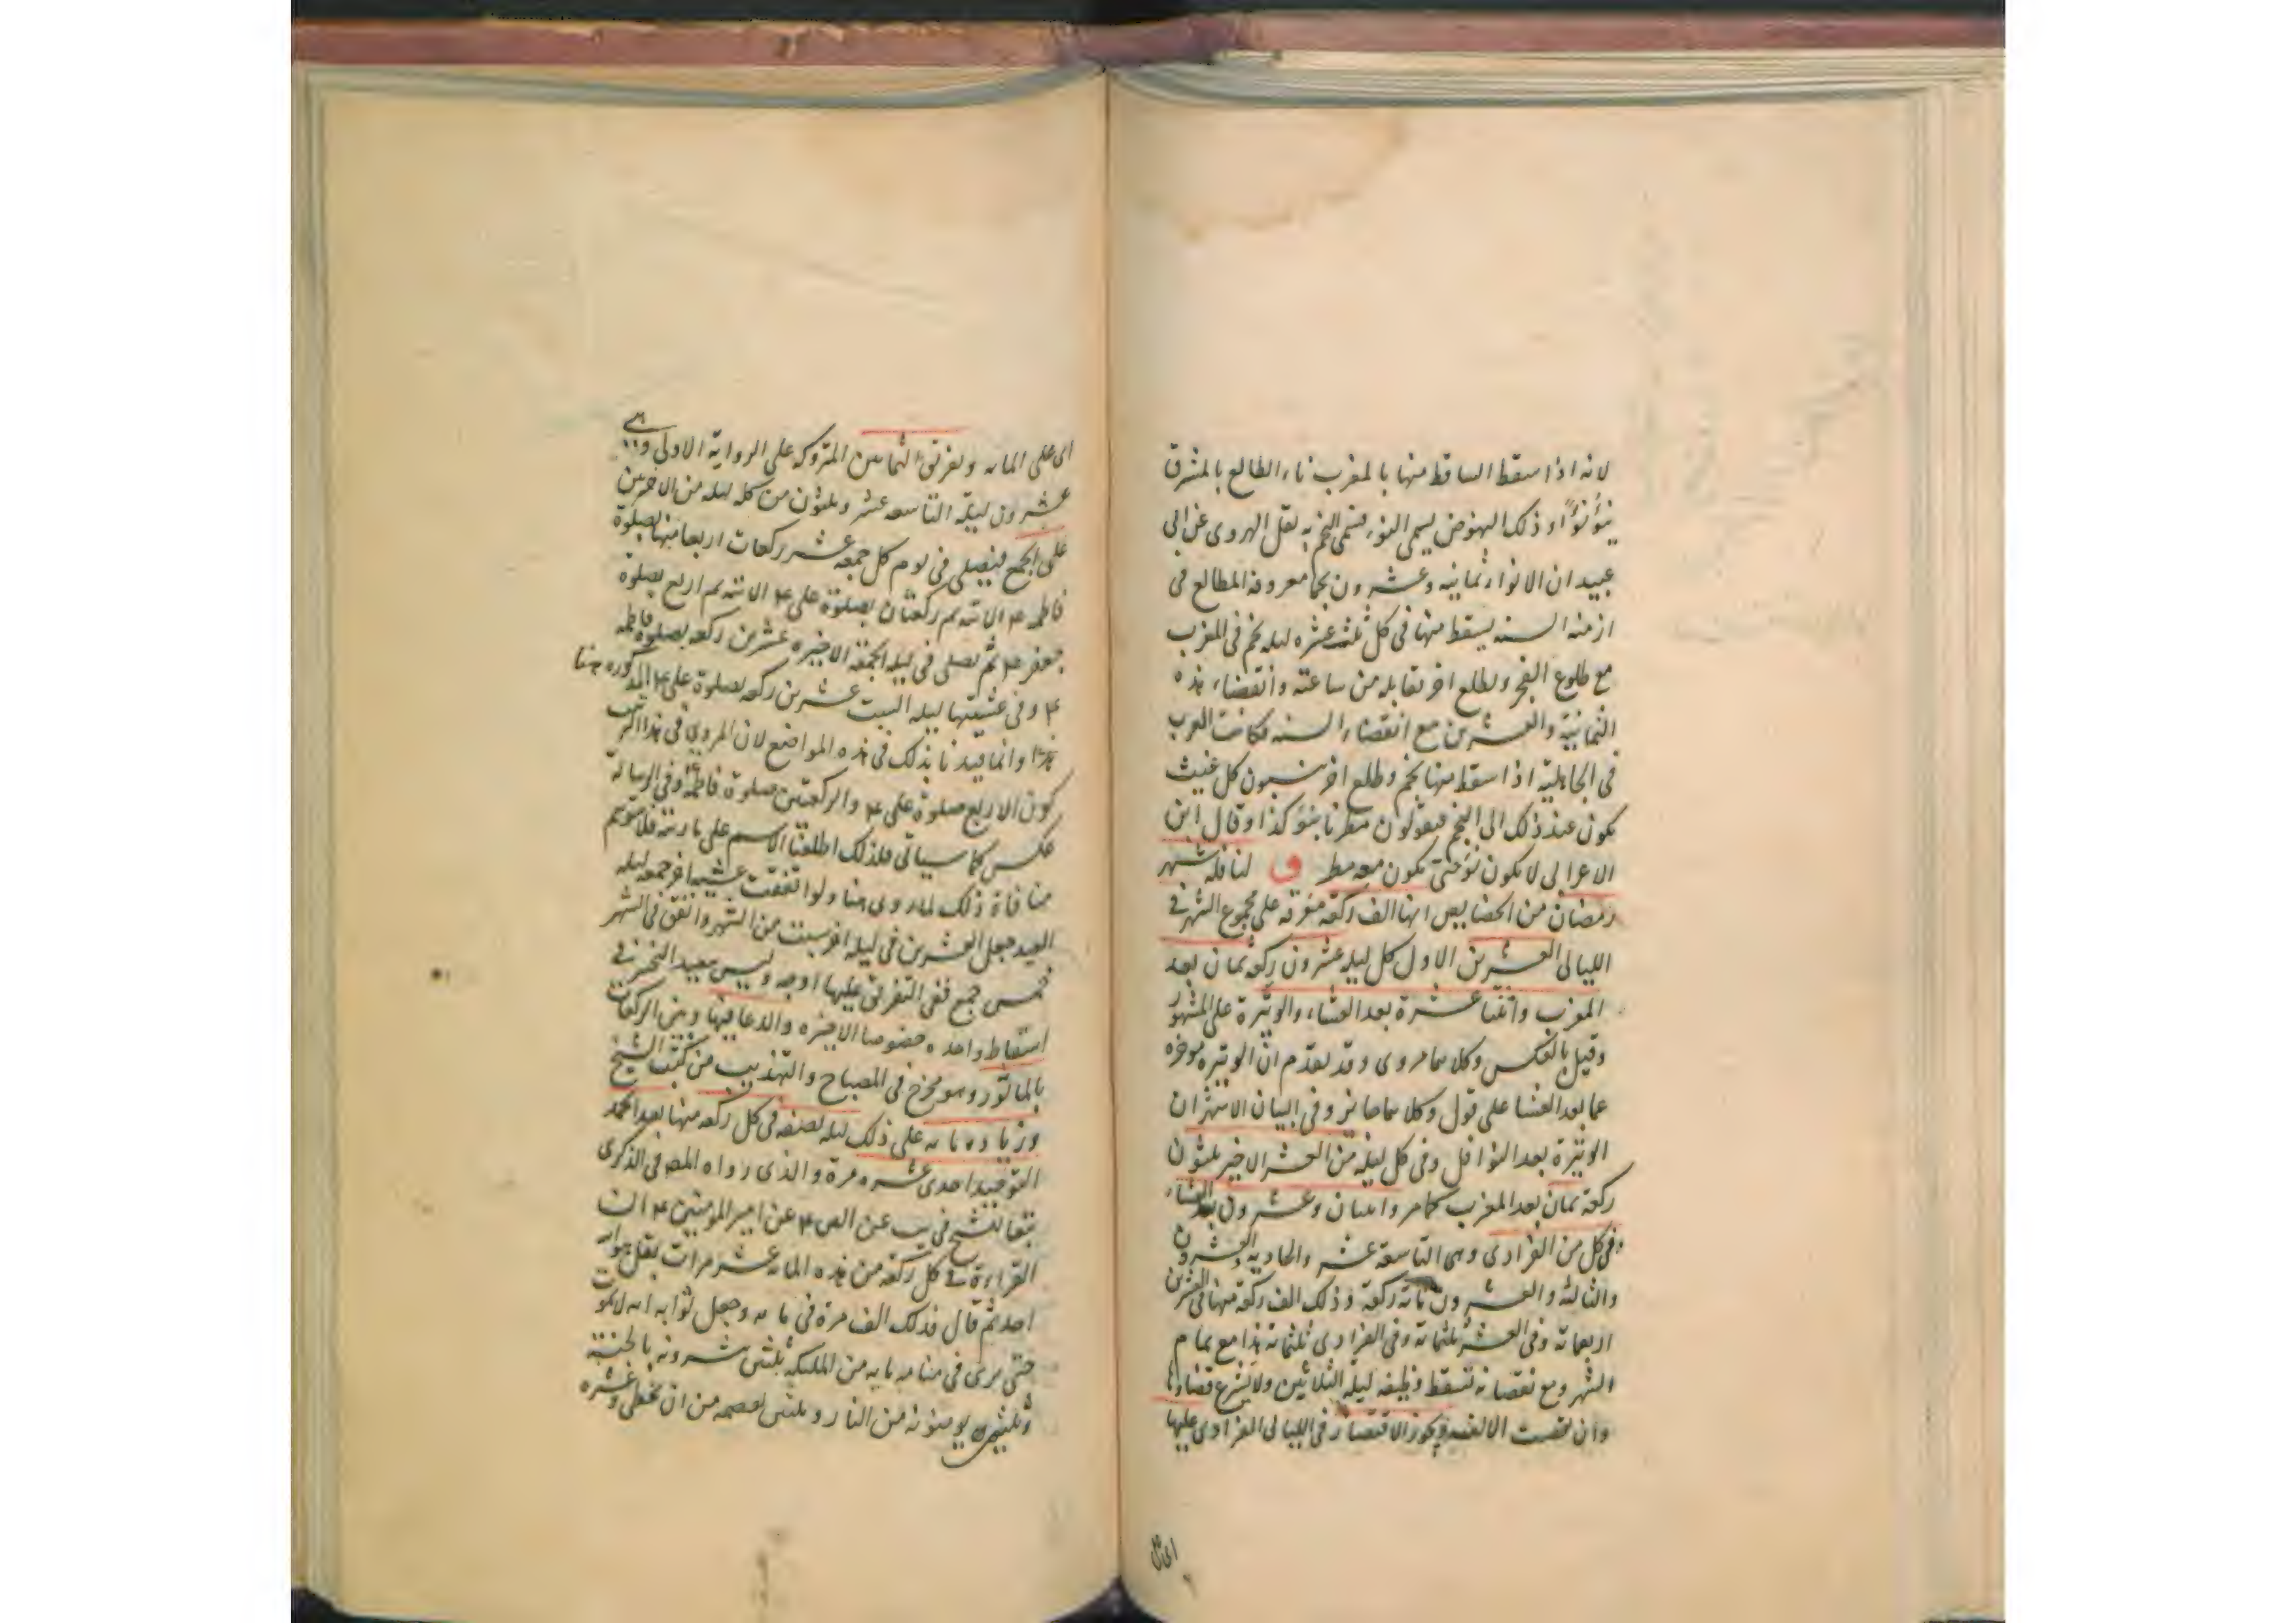 لانه اذا سقط الساقط منها بالمغرب ناء الطالع بالمشرق
ينؤ نوًا وذلك النهوض يسمى النوء فسمى النجم به نقل الهروى عن ابى
عبيد ان الانواء ثمانيه وعشرون نجما معروفة المطالع فى
ازمنه السنه يسقط منها فى كل ثلث عشره ليله نجم فى المغرب
مع طلوع الفجر ويطلع اخر يقابله من ساعته وانقضاء هذه
الثمانية والعشرين مع انقضاء السنه فكانت العرب
فى الجاهلية اذا سقط منها نجم وطلع اخر ينسبون كل غيث
يكون عند ذلك الى النجم فيقولون مطرنا بنؤ كذا وقال ابن
الاعرابى لا يكون نؤ حتى يكون معه مطر و لنافلة شهر
رمضان من الخصايص انها الف ركعة متفرقه على مجموع الشهر فى
الليالى العشرين الاول كل ليلة عشرون ركعة ثمان بعد
المغرب واثنتا عشرة بعد العشاء والوتيرة على المشهور
وقيل بالعكس وكلاهما مروى وقد تقدم ان الوتيره موخره
عما بعد العشا على قول وكلاهما جايز وفى البيان الاشهران
الوتيرة بعد النوافل وفى كل ليلة من العشر الاخير ثلثون
ركعة ثمان بعد المغرب كما مر واثنتان وعشرون بعد العشاء
وفى كل من الفرادى وهى التاسعة عشر والحاديه والعشرون
والثالثة والعشرون مائة ركعة وذلك الف ركعة منها فى العشرين
اربعمائة وفى العشر ثلثمائة وفى الفرادى ثلثمائة هذا مع تمام
الشهر ومع نقصانه تسقط وظيفه ليلة الثلاثين ولا يشرع قضاؤها
وان نقصت الالف ويجوز الاقتصار فى الليالى الفرادى عليها
اى على المائة وتفرق الثمانين المتروكه على الرواية الاولى وهى
عشرون ليلة التاسعه عشر وثلثون من كل ليله من الاخرين
على الجمع فيصلى فى يوم كل جمعه عشر ركعات اربعا منها بصلوة
جعفر ع ثم يصلى فى ليلة الجمعة الاخيره عشرين ركعه بصلوة فاطمه
ع وفى عشيتها ليله السبت عشرين ركعه بصلوة على ع المذكوره هنا
وانما قيدنا بذلك فى هذه المواضع لان المروى فى هذا الترتيب
كون الاربع صلوة على ع والركعتين صلوة فاطمة وفى الرسالة
عكس كما سياتى فلذلك اطلقنا الاسم على ما رتبه فلا يتوهم
منافاة ذلك لما روى هنا ولو اتفقت عشيه اخر جمعه ليله
العيد جعل العشرين فى ليله اخر سبت من الشهر ولو اتفق فى الشهر
خمس جمع ففى التفريق عليها اوجه وليس ببعيد التخيير فى
اسقاط واحده خصوصا الاخيره والدعا فيها وبين الركعات
بالماثور وهو مخرج فى المصباح والتهذيب من كتب الشيخ
وزياده مائه على ذلك ليله نصفه فى كل ركعه منها بعد الحمد
التوحيد احدى عشره مرة والذى رواه المص فى الذكرى
تبعا للشيخ فى يب عن الص ع عن امير المومنين ع ان
القراءة فى كل ركعة من هذه المائه عشر مرات بقل هو الله
احد ثم قال فذلك الف مرة فى مائه وجعل ثوابه انه لايموت
حتى يرى فى منامه مايه من الملئكه ثلثين يبشرونه بالجنة
وثلثين يومنونه من النار وثلثين تعصمه من ان يخطى وعشره